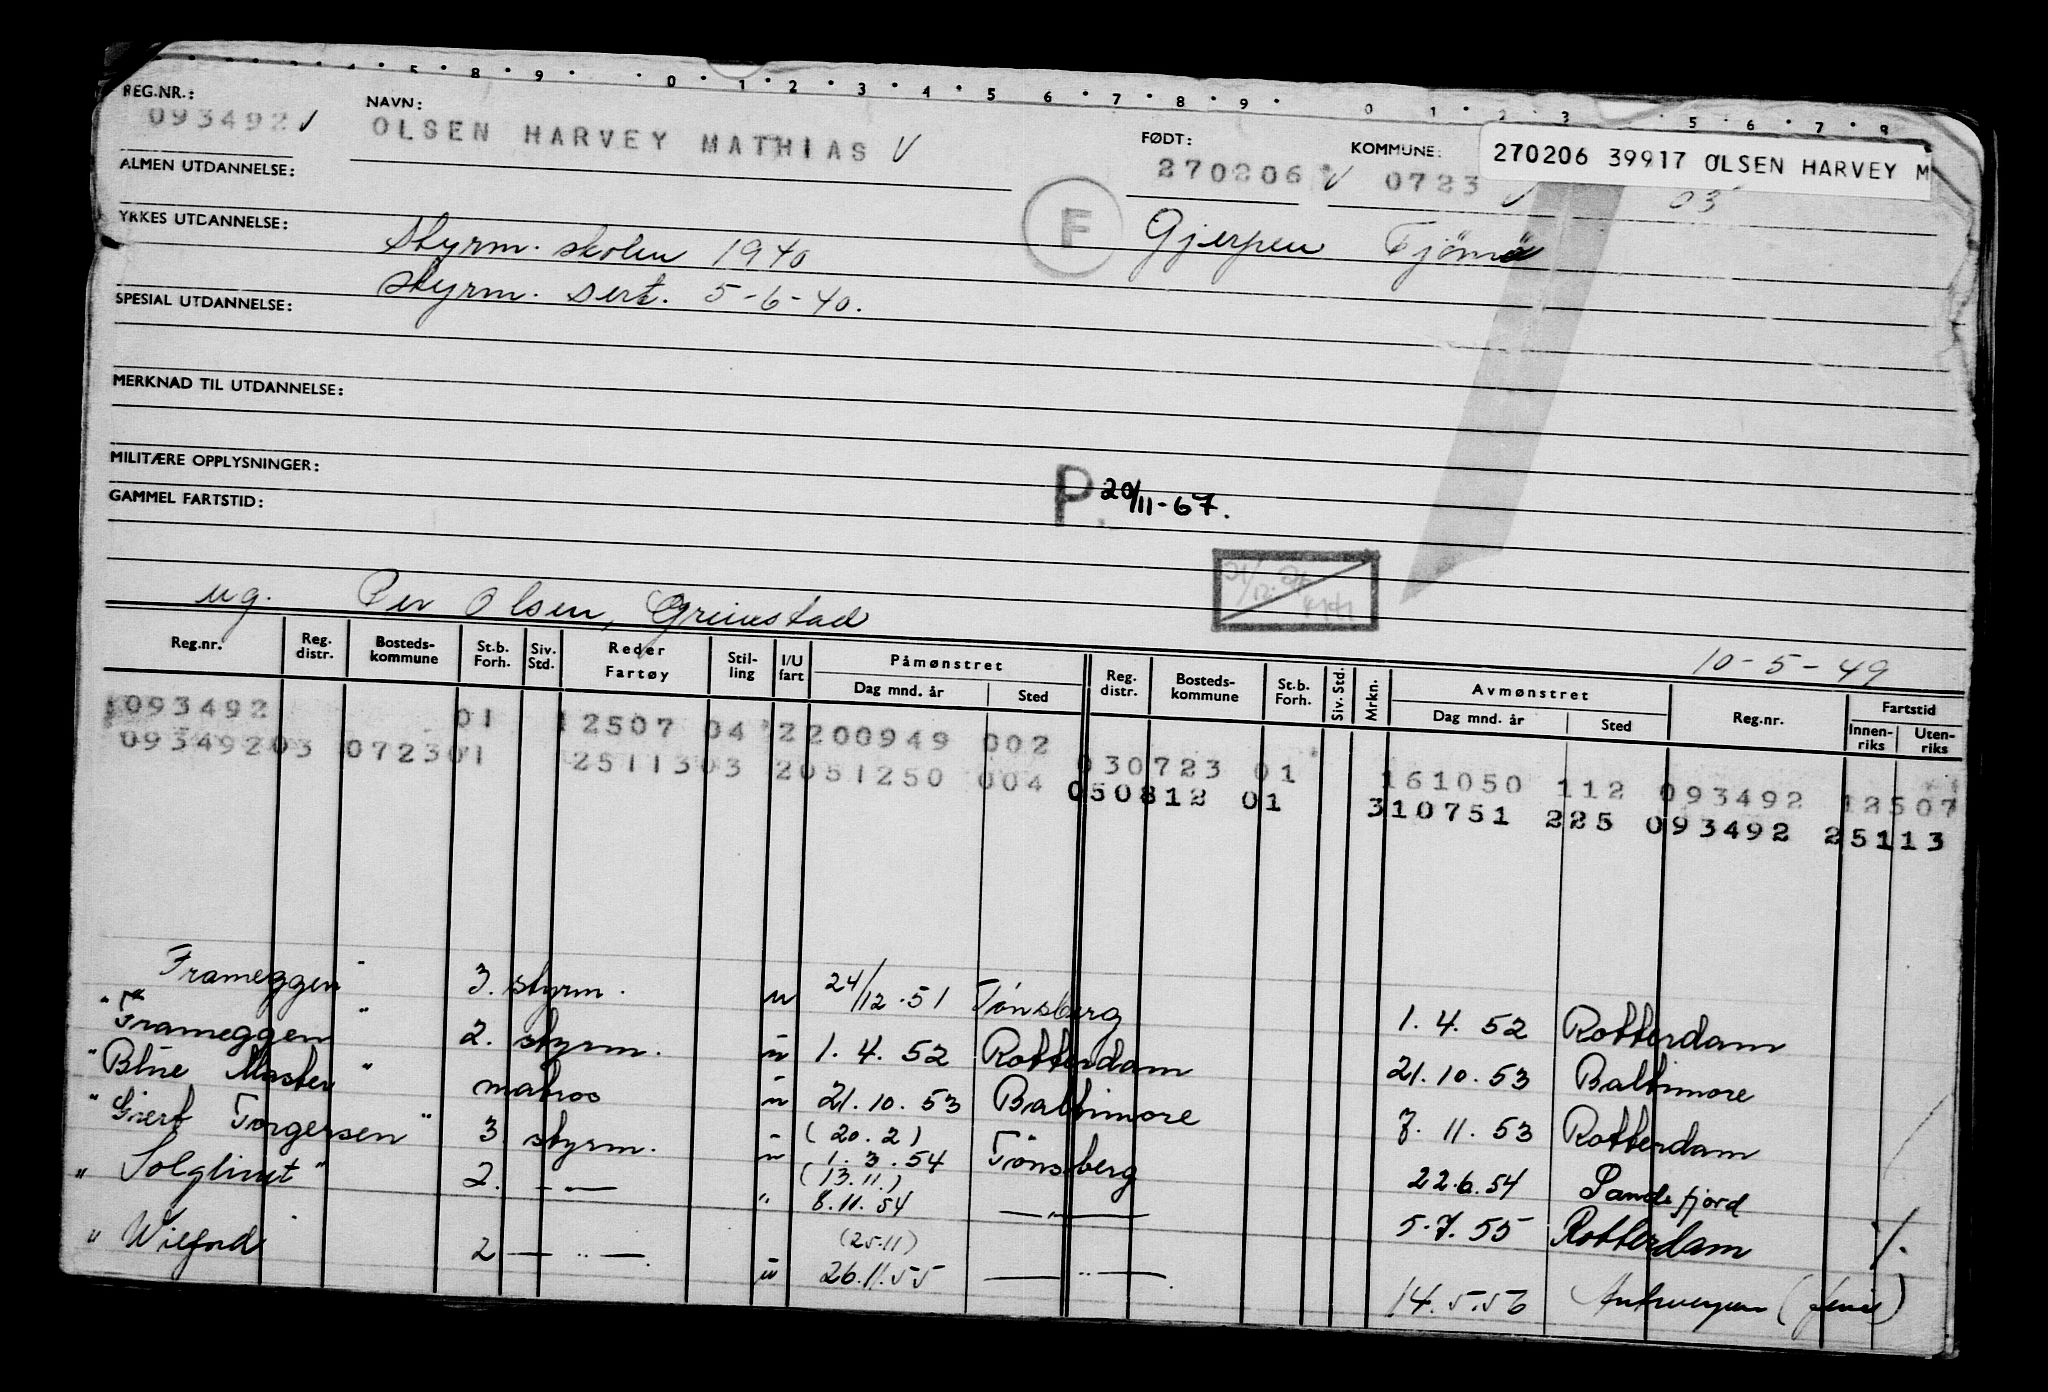 5 8 9 0 1 2 3 4 5 6 7 8 9 0 1 2 3 5 6 7 8
REG.NR.: NAVN: FØDT: KOMMUNE:
093492 OLSEN HARVEY MATHIAS 270206 0723 03
270206 39917 OLSEN HARVEY M
ALMEN UTDANNELSE:
F Gjerpen Tjöme
YRKES UTDANNELSE: Styrm. skolen 1940
Styrm. sert. 5-6-40.
SPESIAL UTDANNELSE:
MERKNAD TIL UTDANNELSE:
MILITÆRE OPPLYSNINGER:
P. 20/11-67.
GAMMEL FARTSTID:
ug. Per Olsen, Grimstad
10-5-49
Reg.nr. Reg. distr. Bosteds-kommune St.b. Forh. Siv. Std. Reder Fartøy Stil-ling I/U fart Påmønstret Dag mnd. år Sted Reg. distr. Bosteds-kommune St.b. Forh. Siv. Std. Mrkn. Avmønstret Dag mnd. år Sted Reg.nr. Fartstid Innen-riks Uten-riks
093492 01 12507 04 2 200949 002 030723 01 161050 112 093492 12507
093492 03 0723 01 25113 03 2 051250 004 050812 01 310751 225 093492 25113
Frameggen " 3. styrm. u 24/12.51 Tönsberg 1.4.52 Rotterdam
" Frameggen " 2. styrm. u 1.4.52 Rotterdam 21.10.53 Baltimore
" Blue Master " matros u 21.10.53 Baltimore 7.11.53 Rotterdam
(20.2)
" Giert Torgersen " 3 styrm. u 1.3.54 Tönsberg 22.6.54 Sandefjord
(13.11.)
" Solglimt " 2. — — " 8.11.54 — " — 5.7.55 Rotterdam
(25.11)
" Wilford 2 — " — u 26.11.55 — " — 14.5.56 Antwerpen (ferie)